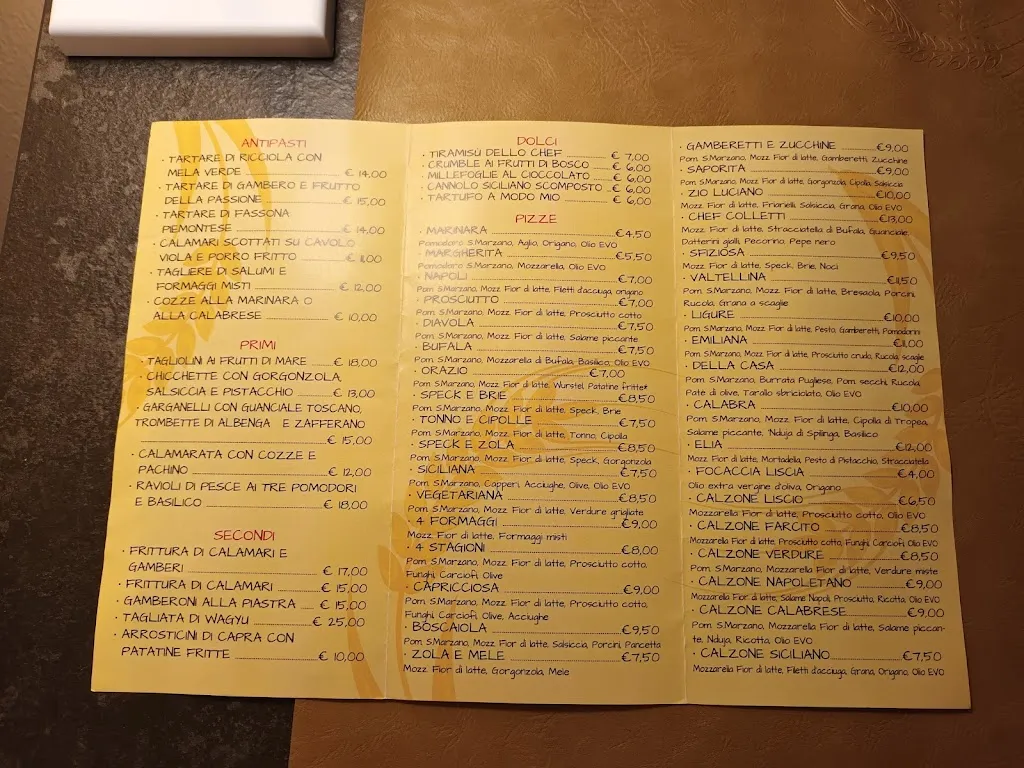 ANTIPASTI
· TARTARE DI RICCIOLA CON
MELA VERDE € 14,00
· TARTARE DI GAMBERO E FRUTTO
DELLA PASSIONE € 15,00
· TARTARE DI FASSONA
PIEMONTESE € 14,00
· CALAMARI SCOTTATI SU CAVOLO
VIOLA E PORRO FRITTO € 11,00
· TAGLIERE DI SALUMI E
FORMAGGI MISTI € 12,00
· COZZE ALLA MARINARA O
ALLA CALABRESE € 10,00
PRIMI
· TAGLIOLINI AI FRUTTI DI MARE € 18,00
· CHICCHETTE CON GORGONZOLA,
SALSICCIA E PISTACCHIO € 13,00
· GARGANELLI CON GUANCIALE TOSCANO,
TROMBETTE DI ALBENGA E ZAFFERANO
€ 15,00
· CALAMARATA CON COZZE E
PACHINO € 12,00
· RAVIOLI DI PESCE AI TRE POMODORI
E BASILICO € 18,00
SECONDI
· FRITTURA DI CALAMARI E
GAMBERI € 17,00
· FRITTURA DI CALAMARI € 15,00
· GAMBERONI ALLA PIASTRA € 15,00
· TAGLIATA DI WAGYU € 25,00
· ARROSTICINI DI CAPRA CON
PATATINE FRITTE € 10,00
DOLCI
· TIRAMISÙ DELLO CHEF € 7,00
· CRUMBLE AI FRUTTI DI BOSCO € 6,00
· MILLEFOGLIE AL CIOCCOLATO € 6,00
· CANNOLO SICILIANO SCOMPOSTO € 6,00
· TARTUFO A MODO MIO € 6,00
PIZZE
· MARINARA €4,50
Pomodoro S.Marzano, Aglio, Origano, Olio EVO
· MARGHERITA €5,50
Pomodoro S.Marzano, Mozzarella, Olio EVO
· NAPOLI €7,00
Pom. S.Marzano, Mozz. Fior di latte, Filetti d'acciuga, origano
· PROSCIUTTO €7,00
Pom. S.Marzano, Mozz. Fior di latte, Prosciutto cotto
· DIAVOLA €7,50
Pom. S.Marzano, Mozz. Fior di latte, Salame piccante
· BUFALA €7,50
Pom. S.Marzano, Mozzarella di Bufala, Basilico, Olio EVO
· ORAZIO €7,00
Pom. S.Marzano, Mozz. Fior di latte, Wurstel, Patatine fritte*
· SPECK E BRIE €8,50
Pom. S.Marzano, Mozz. Fior di latte, Speck, Brie
· TONNO E CIPOLLE €7,50
Pom. S.Marzano, Mozz. Fior di latte, Tonno, Cipolla
· SPECK E ZOLA €8,50
Pom. S.Marzano, Mozz. Fior di latte, Speck, Gorgonzola
· SICILIANA €7,50
Pom. S.Marzano, Capperi, Acciughe, Olive, Olio EVO
· VEGETARIANA €8,50
Pom. S.Marzano, Mozz. Fior di latte, Verdure grigliate
· 4 FORMAGGI €9,00
Mozz. Fior di latte, Formaggi misti
· 4 STAGIONI €8,00
Pom. S.Marzano, Mozz. Fior di latte, Prosciutto cotto,
Funghi, Carciofi, Olive
· CAPRICCIOSA €9,00
Pom. S.Marzano, Mozz. Fior di latte, Prosciutto cotto,
Funghi, Carciofi, Olive, Acciughe
· BOSCAIOLA €9,50
Pom. S.Marzano, Mozz. Fior di latte, Salsiccia, Porcini, Pancetta
· ZOLA E MELE €7,50
Mozz. Fior di latte, Gorgonzola, Mele
· GAMBERETTI E ZUCCHINE €9,00
Pom. S.Marzano, Mozz. Fior di latte, Gamberetti, Zucchine
· SAPORITA €9,00
Pom. S.Marzano, Mozz. Fior di latte, Gorgonzola, Cipolla, Salsiccia
· ZIO LUCIANO €10,00
Mozz. Fior di latte, Friarielli, Salsiccia, Grana, Olio EVO
· CHEF COLLETTI €13,00
Mozz. Fior di latte, Stracciatella di Bufala, Guanciale,
Datterri gialli, Pecorino, Pepe nero
· SFIZIOSA €9,50
Mozz. Fior di latte, Speck, Brie, Noci
· VALTELLINA €11,50
Pom. S.Marzano, Mozz. Fior di latte, Bresaola, Porcini,
Rucola, Grana a scaglie
· LIGURE €10,00
Pom. S.Marzano, Mozz. Fior di latte, Pesto, Gamberetti, Pomodorini
· EMILIANA €11,00
Pom. S.Marzano, Mozz. Fior di latte, Prosciutto crudo, Rucola, scaglie
· DELLA CASA €12,00
Pom. S.Marzano, Burrata Pugliese, Pom. secchi, Rucola,
Patè di olive, Tarallo sbriciolato, Olio EVO
· CALABRA €10,00
Pom. S.Marzano, Mozz. Fior di latte, Cipolla di Tropea,
Salame piccante, 'Nduja di Spilinga, Basilico
· ELIA €12,00
Mozz. Fior di latte, Mortadella, Pesto di Pistacchio, Stracciatella
· FOCACCIA LISCIA €4,00
Olio extra vergine d'oliva, Origano
· CALZONE LISCIO €6,50
Mozzarella Fior di latte, Prosciutto cotto, Olio EVO
· CALZONE FARCITO €8,50
Mozzarella Fior di latte, Prosciutto cotto, Funghi, Carciofi, Olio EVO
· CALZONE VERDURE €8,50
Pom. S.Marzano, Mozzarella Fior di latte, Verdure miste
· CALZONE NAPOLETANO €9,00
Mozzarella Fior di latte, Salame Napoli, Prosciutto, Ricotta, Olio EVO
· CALZONE CALABRESE €9,00
Pom. S.Marzano, Mozzarella Fior di latte, Salame piccan-
te, Nduja, Ricotta, Olio EVO
· CALZONE SICILIANO €7,50
Mozzarella Fior di latte, Filetti d'acciuga, Grana, Origano, Olio EVO